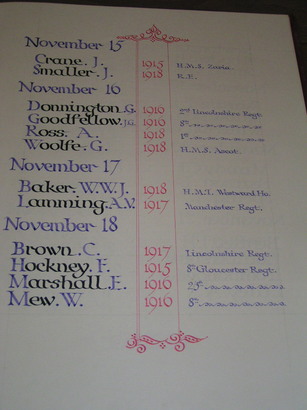 November 15
Crane. J. 1915 H.M.S. Zaria.
Smaller. J. 1918 R.E.
November 16
Donnington. G. 1916 2nd Lincolnshire Regt.
Goodfellow. J.G. 1916 8th
Ross. A. 1918 1st
Woolfe. G. 1918 H.M.S. Ascot.
November 17
Baker. W.W.J. 1918 H.M.T. Westward Ho.
Lamming. A.V. 1917 Manchester Regt.
November 18
Brown. C. 1917 Lincolnshire Regt.
Hockney. F. 1915 8th Gloucester Regt.
Marshall. E. 1916
Mew. W. 1916 8th